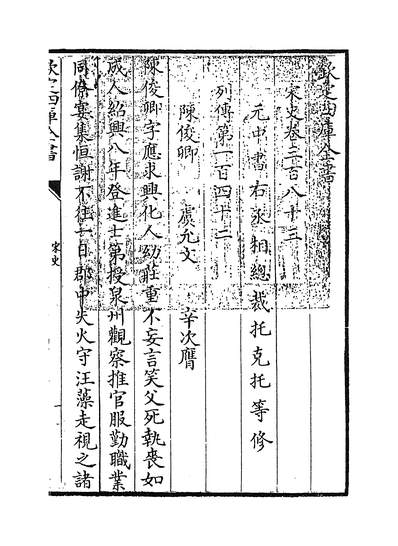 欽定四庫全書
宋史卷三百八十三
元中書右丞相總裁托克托等修
列傳第一百四十二
陳俊卿　虞允文　辛次膺
陳俊卿字應求興化人幼莊重不妄言笑父死執喪如
成人紹興八年登進士第授泉州觀察推官服勤職業
同僚宴集恒謝不往一日郡中失火守汪藻走視之諸
欽定四庫全書
宋史
一